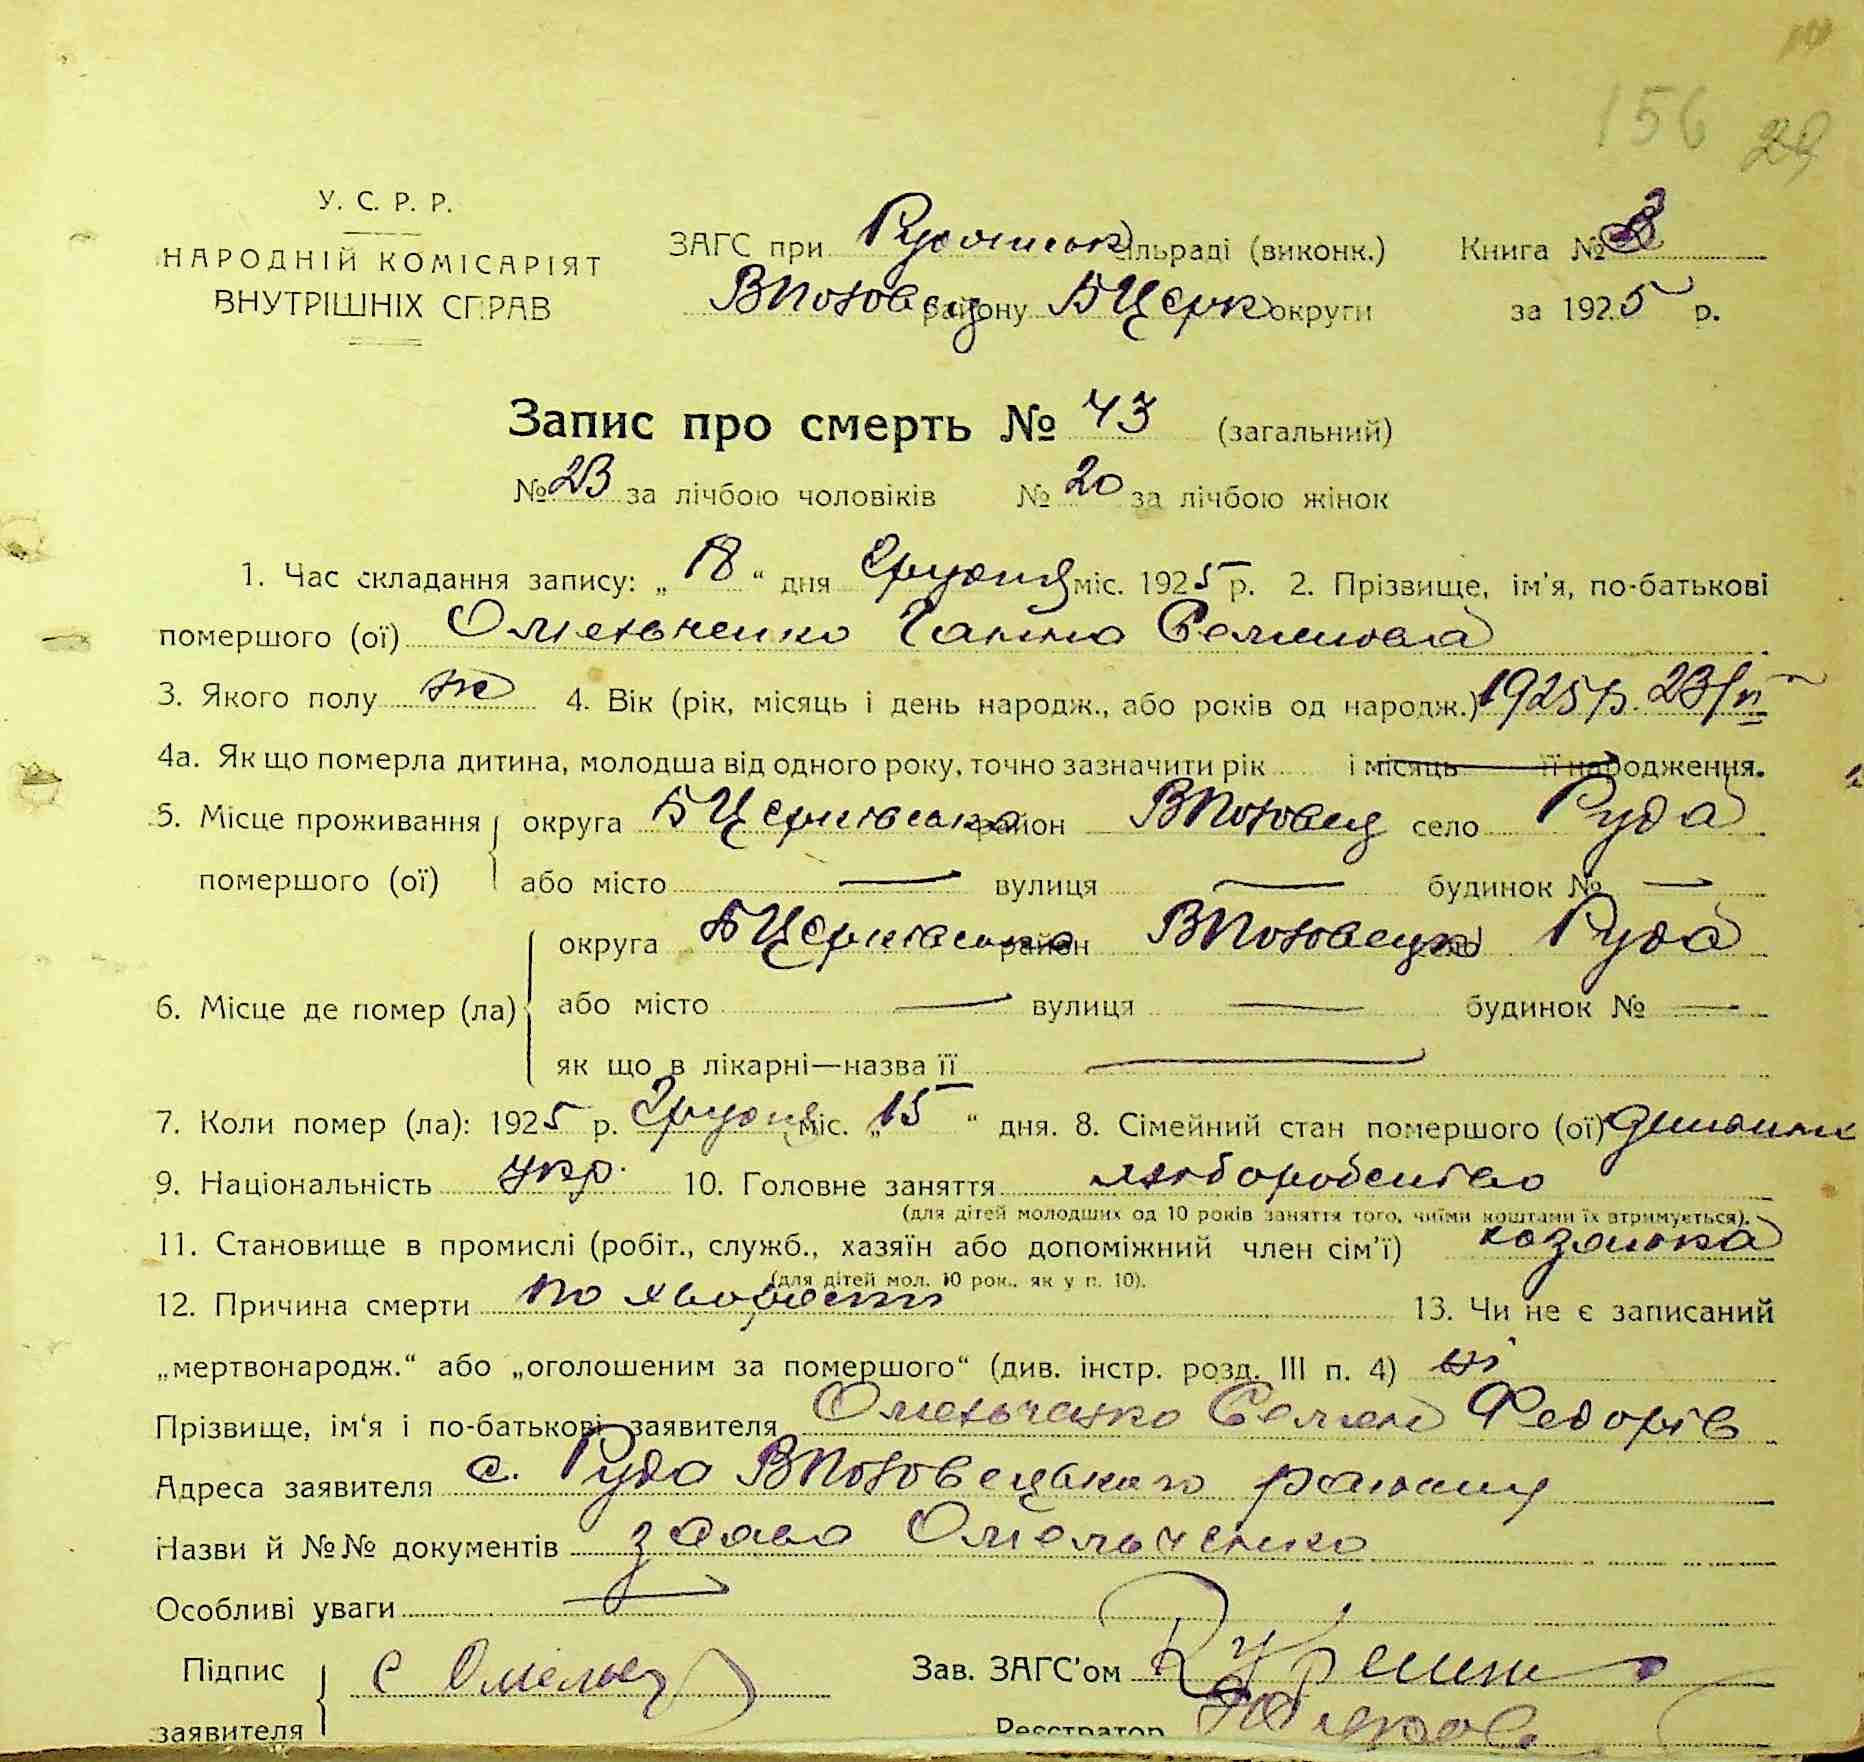 156 29
У. С. Р. Р.
НАРОДНІЙ КОМІСАРІЯТ
ВНУТРІШНІХ СПРАВ
ЗАГС при Рудянськ сільраді (виконк.) Книга № 3
ВПоловец району БЦерк округи за 1925 р.
Запис про смерть № 43 (загальний)
№ 23 за лічбою чоловіків № 20 за лічбою жінок
1. Час складання запису: „18“ дня Грудня міс. 1925 р. 2. Прізвище, ім'я, по-батькові
помершого (ої) Омельченко Ганна Семенова
3. Якого полу ж 4. Вік (рік, місяць і день народж., або років од народж.) 1925 р. 23/VI
4а. Як що померла дитина, молодша від одного року, точно зазначити рік і місяць її народження.
5. Місце проживання помершого (ої) округа БЦерківська район ВПоловец село Руда
або місто — вулиця — будинок № —
6. Місце де помер (ла) округа БЦерківська район ВПоловецьк село Руда
або місто — вулиця — будинок № —
як що в лікарні—назва її —
7. Коли помер (ла): 1925 р. Грудня міс. „15“ дня. 8. Сімейний стан помершого (ої) дитина
9. Національність укр. 10. Головне заняття хліборобство
(для дітей молодших од 10 років заняття того, чиїми коштами їх втримується).
11. Становище в промислі (робіт., служб., хазяїн або допоміжний член сім'ї) хозяйка
(для дітей мол. 10 рок., як у п. 10).
12. Причина смерти по хворости 13. Чи не є записаний
„мертвонародж.“ або „оголошеним за помершого“ (див. інстр. розд. III п. 4) ні
Прізвище, ім'я і по-батькові заявителя Омельченко Семен Федорів
Адреса заявителя с. Руда ВПоловецького району
Назви й №№ документів заява Омельченко
Особливі уваги —
Підпис заявителя С Омельч Зав. ЗАГС'ом
Реєстратор